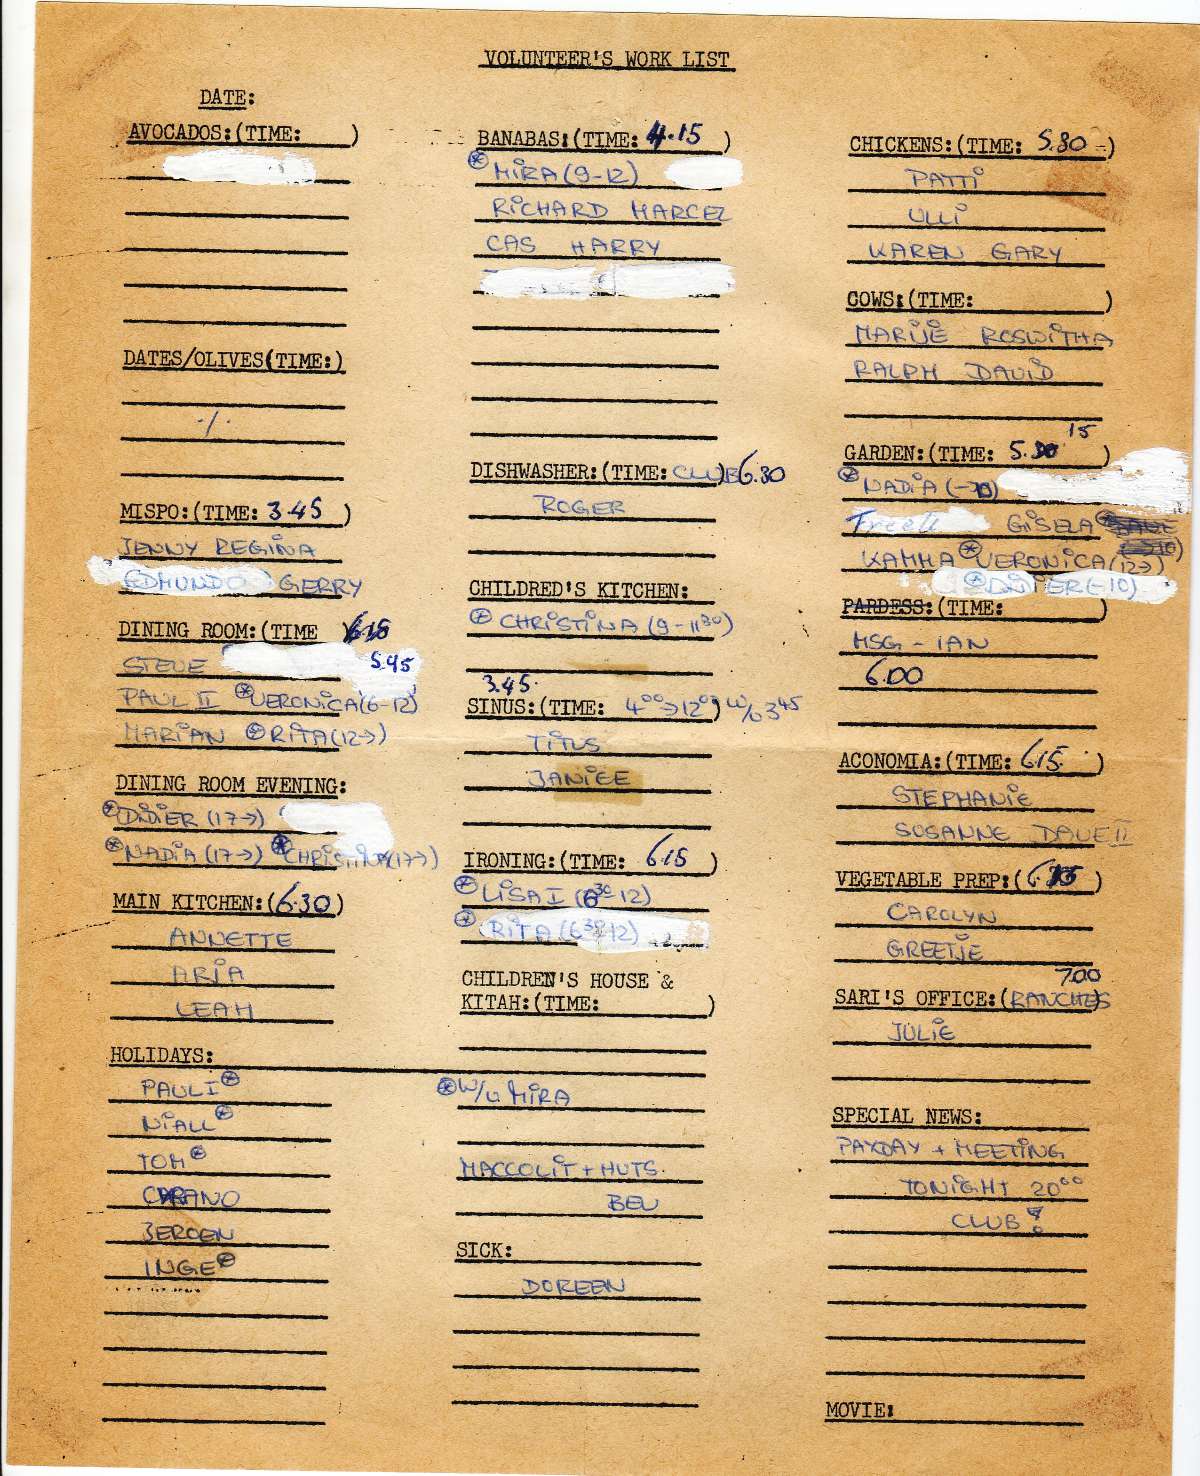 VOLUNTEER'S WORK LIST
DATE:
AVOCADOS:(TIME: )
DATES/OLIVES(TIME:)
./.
MISPO:(TIME: 3.45 )
JENNY REGINA
EDMUNDO GERRY
DINING ROOM:(TIME ) 6.15
STEVE 5.45
PAUL II VERONICA (6-12)
MARIAN RITA (12→)
DINING ROOM EVENING:
DIDIER (17→)
NADIA (17→) CHRISTINA (17→)
MAIN KITCHEN:(6.30)
ANNETTE
ARJA
LEAH
HOLIDAYS:
PAUL I
NIALL
TOM
JEROEN
INGE
BANABAS:(TIME: 4.15 )
MIRA (9-12)
RICHARD MARCEL
CAS HARRY
DISHWASHER:(TIME: CLUB) 6.30
ROGER
CHILDRED'S KITCHEN:
CHRISTINA (9-11³⁰)
3.45.
SINUS:(TIME: 4⁰⁰→12⁰⁰) W/U 3⁴⁵
TITUS
JANICE
IRONING:(TIME: 6.15 )
LISA I (6³⁰-12)
RITA (6³⁰-12)
CHILDREN'S HOUSE &
KITAH:(TIME: )
W/U MIRA
MACCOLIT + HUTS.
BEV
SICK:
DOREEN
CHICKENS:(TIME: 5.30 -)
PATTI
ULLI
KAREN GARY
COWS:(TIME: )
MARIJE ROSWITHA
RALPH DAVID
15
GARDEN:(TIME: 5.30 )
NADIA (→10)
GISELA
KAMMA VERONICA (12→)
DIDIER (-10)
PARDESS:(TIME: )
MSG - IAN
6.00
ACONOMIA:(TIME: 6.15 )
STEPHANIE
SUSANNE DAVE II
VEGETABLE PREP:( )
CAROLYN
GREETJE
7.00
SARI'S OFFICE:(RANCHES)
JULIE
SPECIAL NEWS:
PAYDAY + MEETING
TONIGHT 20⁰⁰
CLUB!
MOVIE: